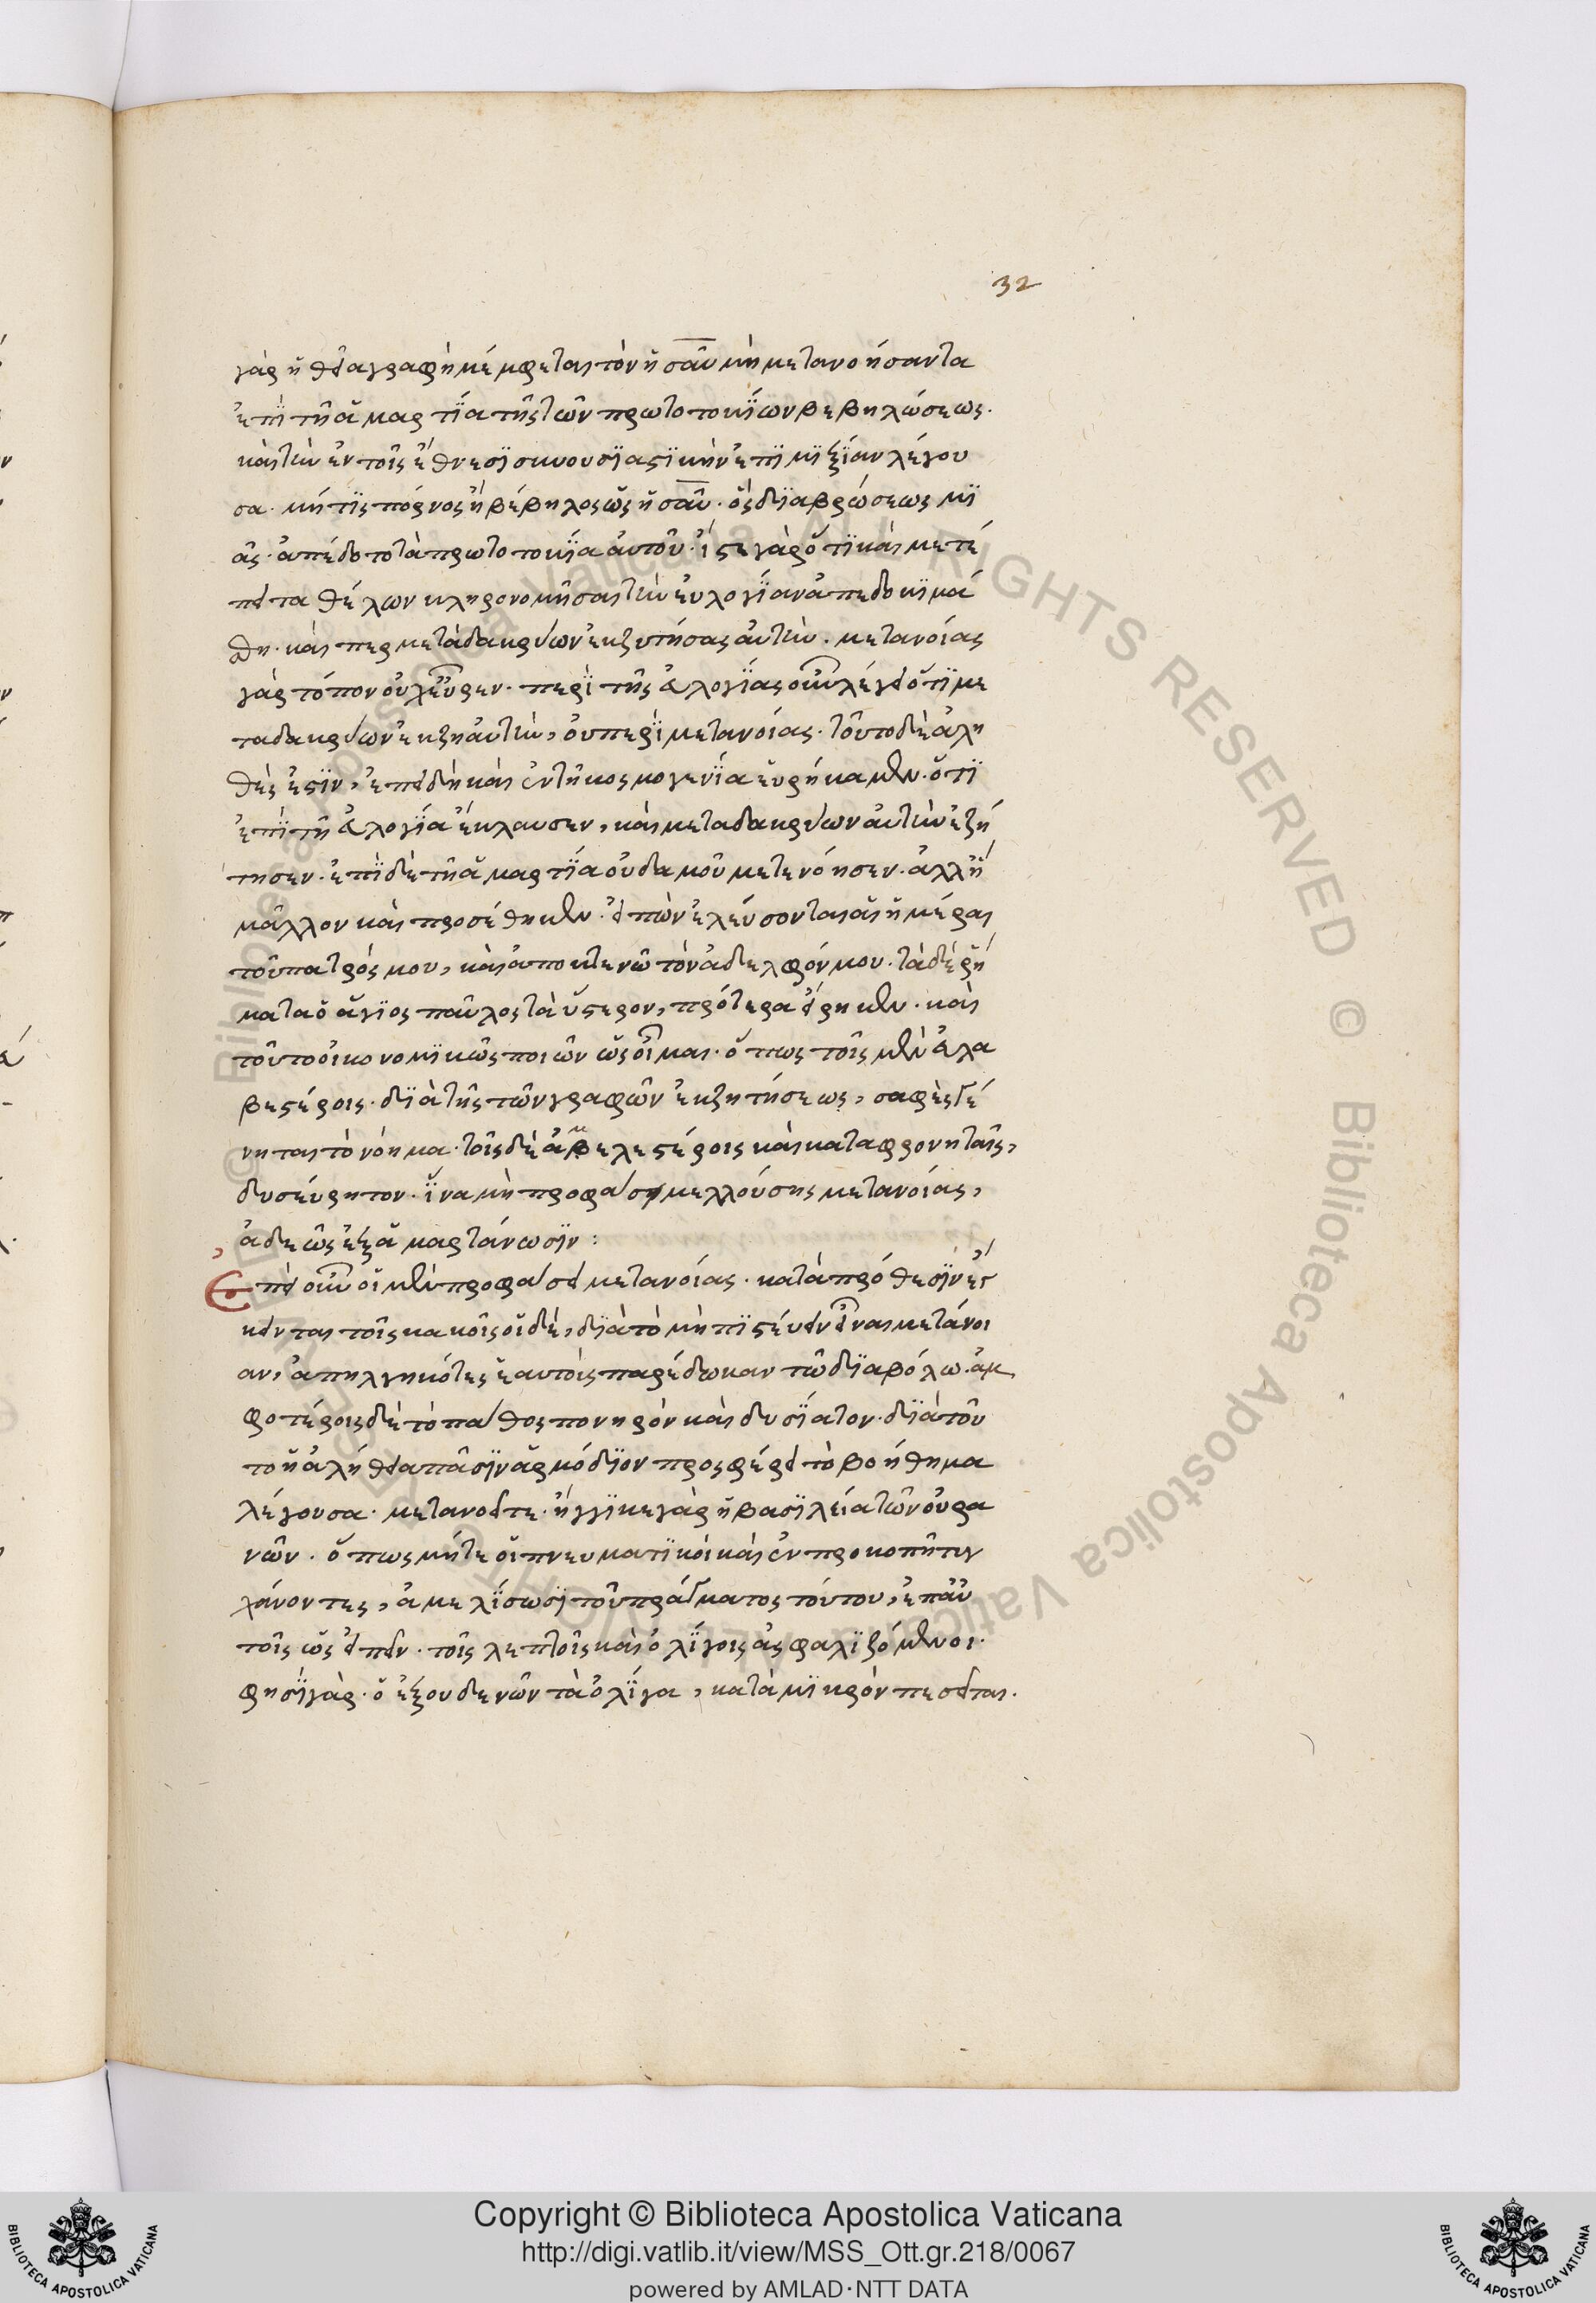 32
γὰρ ἡ θεία γραφὴ μέμφεται τὸν ἡσαῦ μὴ μετανοήσαντα
ἐπὶ τῇ ἁμαρτία τῆς τῶν πρωτοτοκίων βεβηλώσεως.
καὶ τὴν ἐν τοῖς ἔθνεσι συνουσιαστικὴν ἐπιμιξίαν λέγου
σα. μήτις πόρνος ἢ βέβηλος ὡς ἡσαῦ. ὃς διὰ βρώσεως μι
ᾶς. ἀπέδοτο τὰ πρωτοτοκία ἀυτοῦ. ἴστε γὰρ ὅτι καὶ μετέ
πειτα θέλων κληρονομῆσαι τὴν ἐυλογίαν ἀπεδοκιμά
σθη. καίπερ μετὰ δακρύων ἐκζητήσας ἀυτὴν. μετανοίας
γὰρ τόπον οὐχ εὗρεν. περὶ τῆς ἐυλογίας οὖν λέγει ὅτι με
τα δακρύων ἐκζη ἀυτὴν, ὀυ περὶ μετανοίας. τοῦτο δὲ ἀλη
θές ἐστιν, ἐπειδὴ καὶ ἐν τῇ κοσμογενία εὑρήκαμεν. ὅτι
ἐπὶ τῇ ἐυλογία ἔκλαυσεν, καὶ μετα δακρύων ἀυτὴν ἐζή
τησεν. ἐπὶ δὲ τῇ ἁμαρτία οὐδαμοῦ μετενόησεν. ἀλλ ἢ
μᾶλλον καὶ προσέθηκεν. εἰπὼν ἐλεύσονται αἱ ἡμέραι
τοῦ πατρός μου, καὶ ἀποκτενῶ τὸν ἀδελφόν μου. τὰ δὲ ῥή
ματα ὁ ἅγιος παῦλος τὰ ὕστερον, πρότερα εἴρηκεν. καὶ
τοῦτο οἰκονομικῶς ποιῶν ὡς οἶμαι. ὅπως τοῖς μὲν ἐυλα
βεστέροις. διὰ τῆς τῶν γραφῶν ἐκζητήσεως, σαφὲς γέ
νηται τὸ νόημα. τοῖς δὲ ἀβελεστέροις καὶ καταφρονηταῖς,
δυσεύρητον. ἵνα μὴ προφάσει μελλούσης μετανοίας,
ἀδεῶς ἐξαμαρτάνωσιν:
Ἐπεὶ οὖν οἱ μὲν προφάσει μετανοίας. κατὰ πρόθεσιν ἔγ
κεινται τοῖς κακοῖς οἱ δὲ, διὰ τὸ μὴ πιστέυειν εἶναι μετάνοι
αν, ἀπηλγηκότες ἑαυτοὺς παρέδωκαν τῶ διαβόλω. ἀμ
φοτέροις δὲ τὸ πάθος πονηρὸν καὶ δυσίατον. διὰ τοῦ
το ἡ ἀλήθεια πᾶσιν ἁρμόδιον προσφέρει τὸ βοήθημα
λέγουσα. μετανοεῖτε. ἤγγικε γὰρ ἡ βασιλεία τῶν οὐρα
νῶν. ὅπως μήτε οἱ πνευματικοὶ καὶ ἐν προκοπῇ τυγ
χάνοντες, ἀμελίσωσι τοῦ πράγματος τούτου, ἐπ ἀυ
τοῖς ὡς εἰπεῖν. τοῖς λεπτοῖς καὶ ὀλίγοις ἀσφαλιζόμενοι.
φησὶ γὰρ. ὁ ἐξουδενῶν τὰ ὀλίγα, κατὰ μικρὸν πεσεῖται.
Copyright © Biblioteca Apostolica Vaticana
http://digi.vatlib.it/view/MSS_Ott.gr.218/0067
powered by AMLAD·NTT DATA